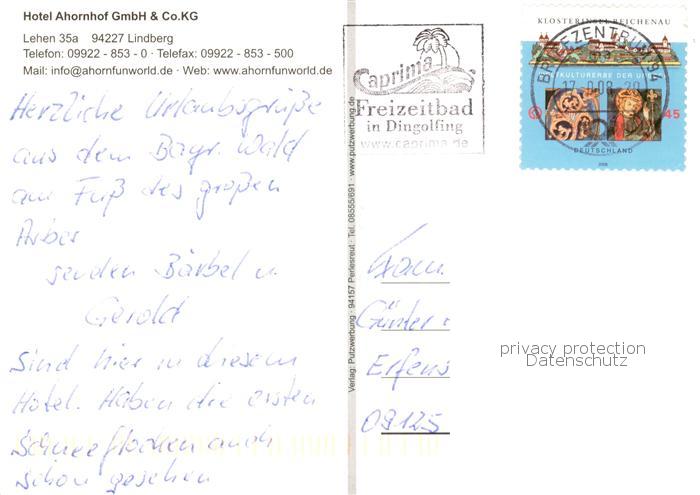 Hotel Ahornhof GmbH & Co.KG
Lehen 35a 94227 Lindberg
Telefon: 09922 - 853 - 0 · Telefax: 09922 - 853 - 500
Mail: info@ahornfunworld.de · Web: www.ahornfunworld.de
Herzliche Urlaubsgrüße
aus dem Bayr. Wald
am Fuß des großen
Arber
senden Bärbel u.
Gerold
Sind hier in diesem
Hotel. Haben die ersten
Schneeflocken auch
schon gesehen
Verlag: Putzwerbung · 94157 Perlesreut · Tel. 08555/691 · www.putzwerbung.de
Caprima
Freizeitbad
in Dingolfing
www.caprima.de
KLOSTERINSEL REICHENAU
BRIEFZENTRUM 94
KULTURERBE DER
45
DEUTSCHLAND
2008
Fam.
Günter
Erfens
09125
privacy protection
Datenschutz